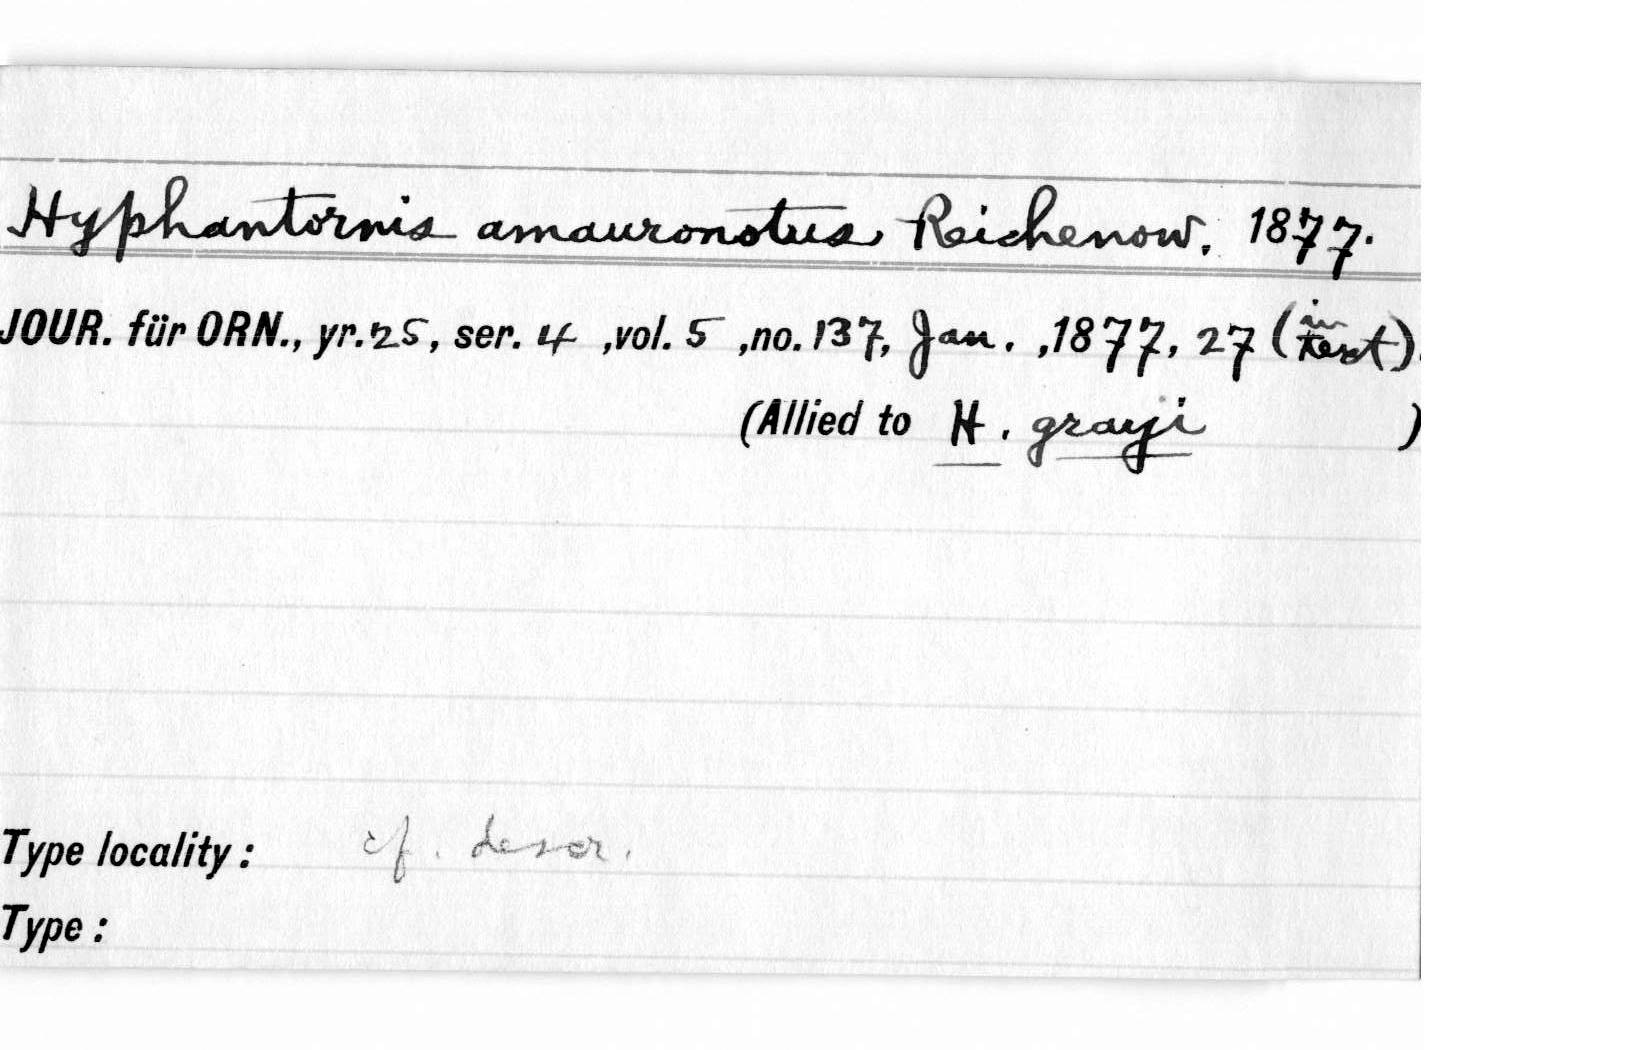 Hyphantornis amauronotus Reichenow. 1877.
JOUR. für ORN., yr.25, ser. 4 ,vol. 5 ,no.137, Jan. ,1877, 27 (in text).
(Allied to H. grayi )
Type locality: cf. descr.
Type: